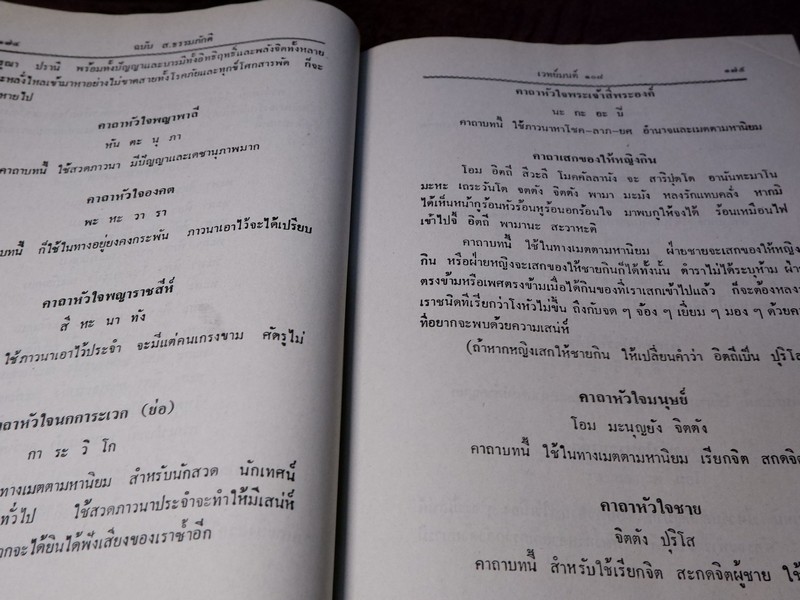 ๑๗๔
ฉบับ ส.ธรรมภักดี
ปรานี พร้อมทั้งปัญญาและบารมีทั้งอิทธิฤทธิ์และพลังจิตทั้งหลาย
หลั่งไหลเข้ามาหาอย่างไม่ขาดสายทั้งโรคภัยและทุกข์โศกสารพัด ก็จะ
หายไป
คาถาหัวใจพญาพาลี
หัน ตะ นุ ภา
คาถาบทนี้ ใช้สวดภาวนา มีปัญญาและเดชานุภาพมาก
คาถาหัวใจองคต
พะ หะ วา รา
บทนี้ ก็ใช้ในทางอยู่ยงคงกระพัน ภาวนาเอาไว้จะได้เปรียบ
คาถาหัวใจพญาราชสีห์
สี หะ นา ทัง
ใช้ภาวนาเอาไว้ประจำ จะมีแต่คนเกรงขาม ศัตรูไม่
คาถาหัวใจนกการะเวก (ย่อ)
กา ระ วิ โก
ทางเมตตามหานิยม สำหรับนักสวด นักเทศน์
ทั่วไป ใช้สวดภาวนาประจำจะทำให้มีเสน่ห์
จะได้ยินได้ฟังเสียงของเราซ้ำอีก
เวทย์มนต์ ๑๐๘
๑๗๕
คาถาหัวใจพระเจ้าสี่พระองค์
นะ กะ อะ ปิ
คาถาบทนี้ ใช้ภาวนาหาโชค-ลาภ-ยศ อำนาจและเมตตามหานิยม
คาถาเสกของให้หญิงกิน
โอม อิตถี สิวะลี โมคคัลลานัง จะ สาริปุตโต อานันทะมาโน
มะหะ เถระวันโต จตตัง จิตตัง พามา มะมัง หลงรักแทบคลั่ง หากมิ
ได้เห็นหน้ากูร้อนหัวร้อนหูร้อนอกร้อนใจ มาพบกูให้จงได้ ร้อนเหมือนไฟ
เข้าไปจี้ อิตถี พามานะ สะวาหะติ
คาถาบทนี้ ใช้ในทางเมตตามหานิยม ฝ่ายชายจะเสกของให้หญิง
กิน หรือฝ่ายหญิงจะเสกของให้ชายกินก็ได้ทั้งนั้น ตำราไม่ได้ระบุห้าม
ตรงข้ามหรือเพศตรงข้ามเมื่อได้กินของที่เราเสกเข้าไปแล้ว ก็จะต้องหลง
เราชนิดที่เรียกว่าโงหัวไม่ขึ้น ถึงกับจด ๆ จ้อง ๆ เยี่ยม ๆ มอง ๆ ด้วย
ที่อยากจะพบด้วยความเสน่ห์
(ถ้าหากหญิงเสกให้ชายกิน ให้เปลี่ยนคำว่า อิตถีเป็น ปุริโส
คาถาหัวใจมนุษย์
โอม มะนุญยัง จิตตัง
คาถาบทนี้ ใช้ในทางเมตตามหานิยม เรียกจิต สกดจิต
คาถาหัวใจชาย
จิตตัง ปุริโส
คาถาบทนี้ สำหรับใช้เรียกจิต สะกดจิตผู้ชาย ใช้